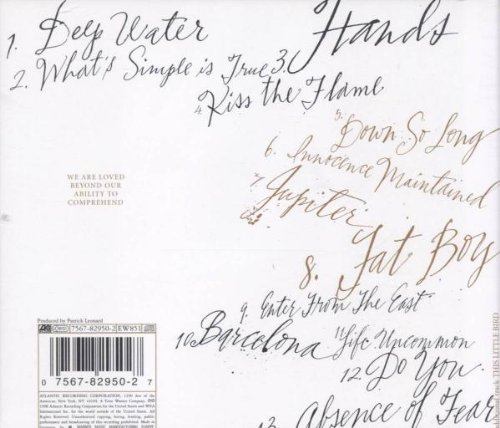 1. Deep Water
2. What's Simple is True
3. Hands
4. Kiss the Flame
5. Down So Long
6. Innocence Maintained
7. Jupiter
8. Fat Boy
9. Enter From The East
10 Barcelona
11 Life Uncommon
12. Do You
13. Absence of Fear
WE ARE LOVED
BEYOND OUR
ABILITY TO
COMPREHEND
Produced by Patrick Leonard
7567-82950-2 EW851
0 7567-82950-2 7
ATLANTIC RECORDING CORPORATION, 1290 Ave of the
THIS LITTLE BIRD